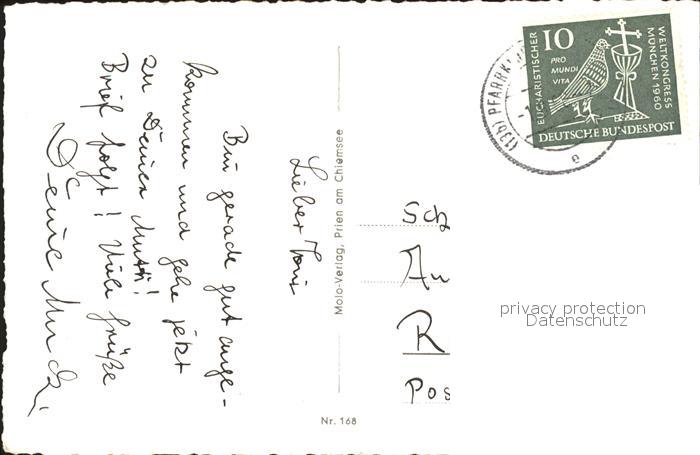 Lieber Toni
Bin gerade gut ange-
kommen und gehe jetzt
zu Deiner Mutti!
Brief folgt! Viele Grüße
Deine
Molo-Verlag, Prien am Chiemsee
Nr. 168
Sch
Au
R
Pos
(13b) PFARRK
e
10
PRO
MUNDI
VITA
EUCHARISTISCHER
WELTKONGRESS
MÜNCHEN 1960
DEUTSCHE BUNDESPOST
privacy protection
Datenschutz